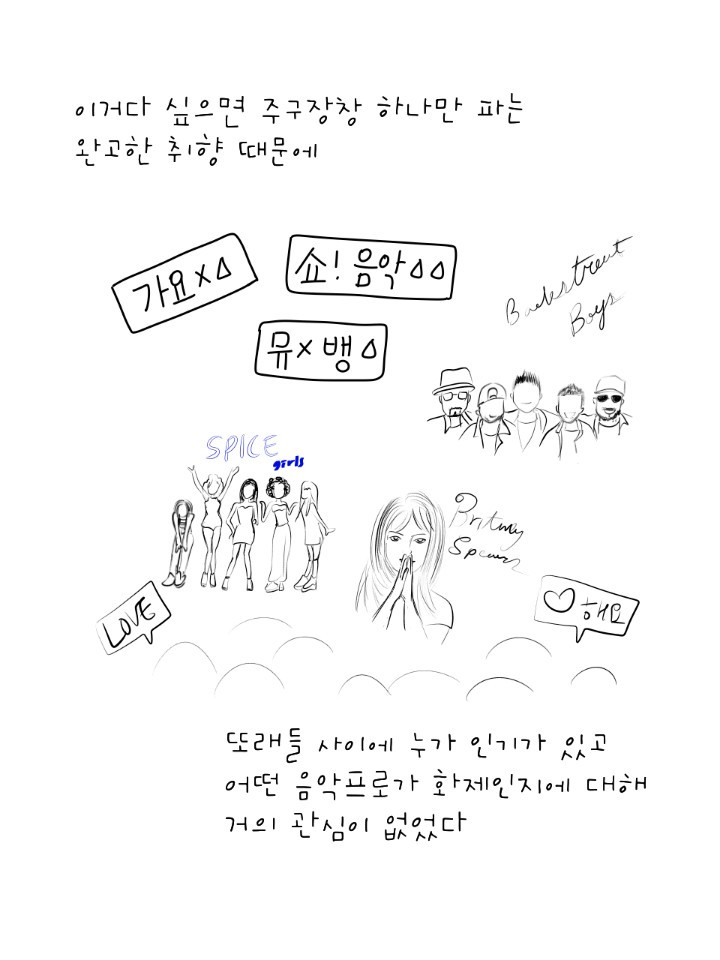 이거다 싶으면 주구장창 하나만 파는
완고한 취향 때문에
가요X△
쇼! 음악△△
뮤X뱅△
Backstreet
Boys
SPICE
girls
Britney
Spears
LOVE
♡해요
또래들 사이에 누가 인기가 있고
어떤 음악프로가 화제인지에 대해
거의 관심이 없었다